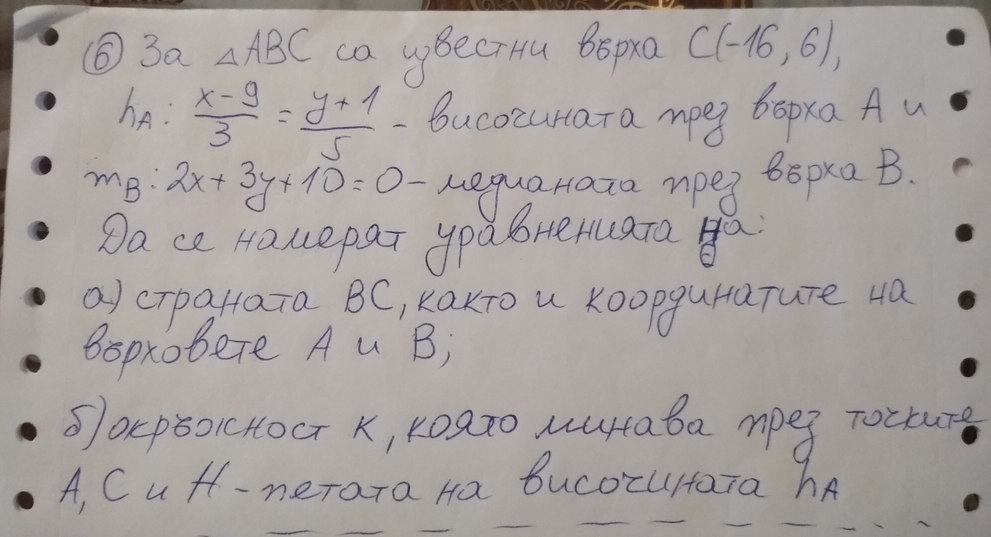 ⑥ За △ABC са известни върха C(-16, 6),
hA: (x-9)/3 = (y+1)/5 - височината през върха A и
mB: 2x+3y+10=0 - медианата през върха B.
Да се намерят уравненията на:
а) страната BC, както и координатите на
върховете A и B;
б) окръжност K, която минава през точките
A, C и H - петата на височината hA